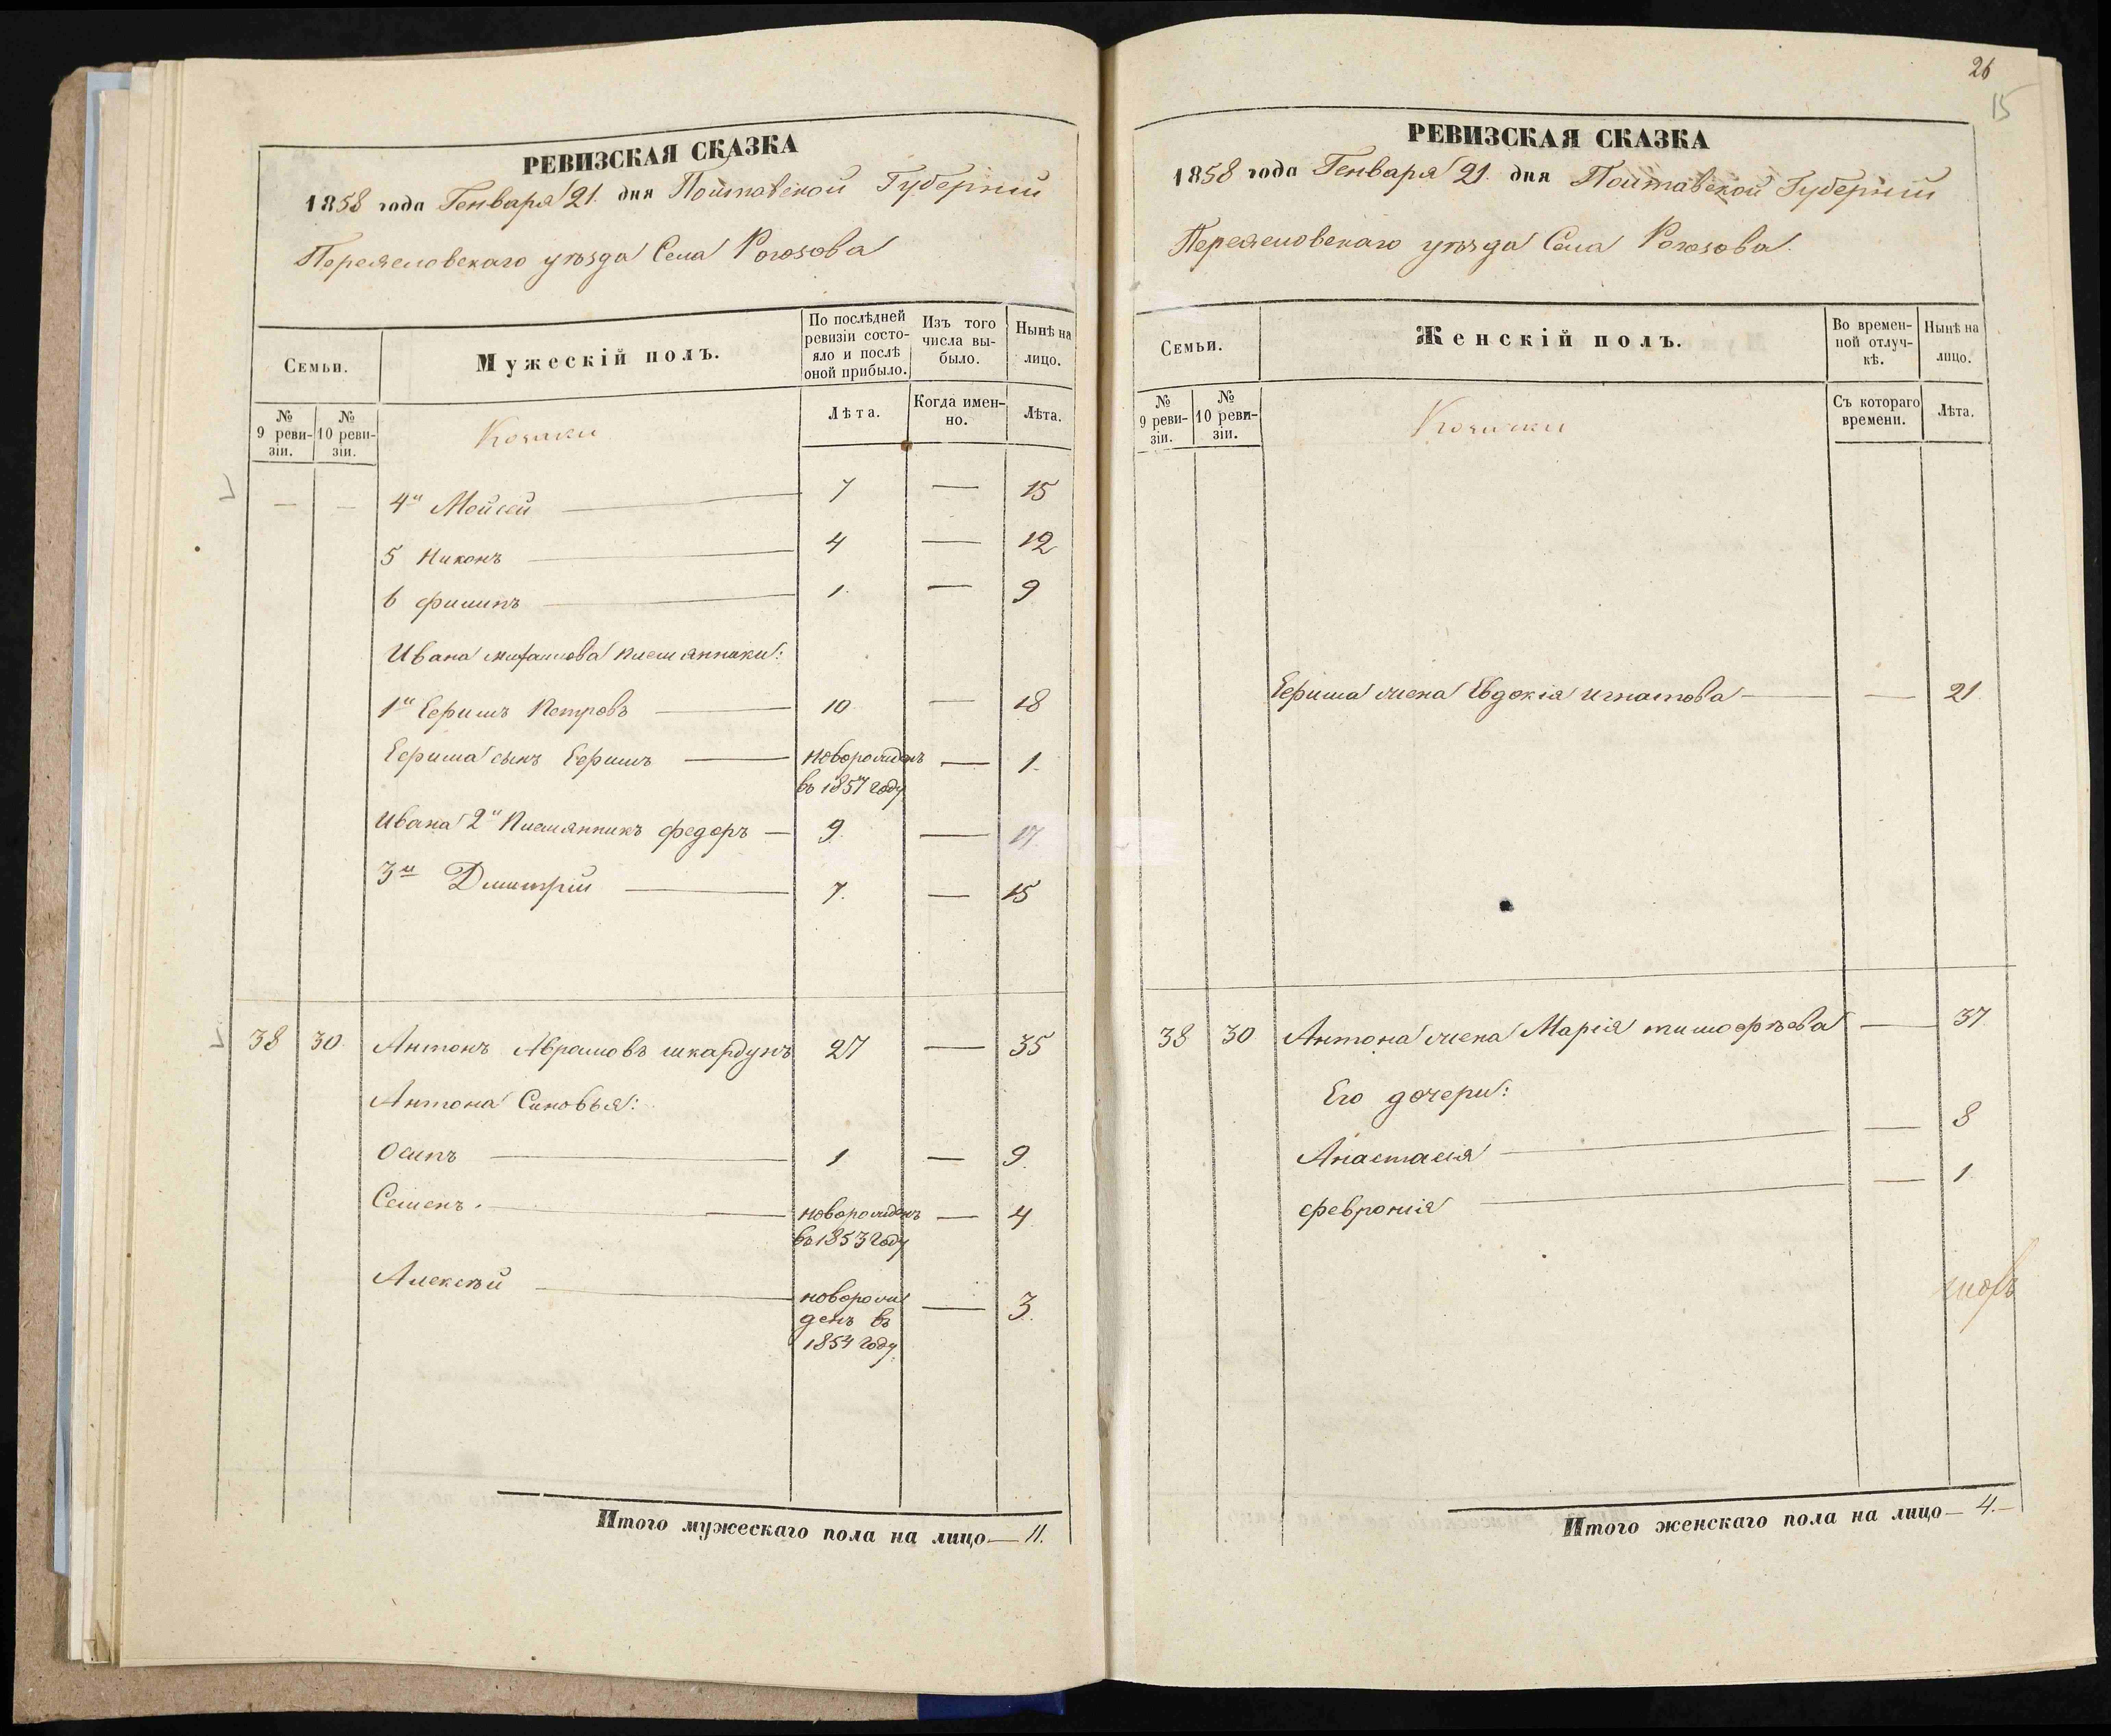 РЕВИЗСКАЯ СКАЗКА
1858 года Генваря 21. дня Полтавской Губернии
Переяславскаго уѣзда Села Рогозова
Семьи.
Мужескій полъ.
По послѣдней ревизіи состояло и послѣ оной прибыло.
Изъ того числа выбыло.
Нынѣ на лицо.
№ 9 ревизіи.
№ 10 ревизіи.
Козаки
Лѣта.
Когда именно.
Лѣта.
— — 4й Мойсей — 7 — 15
5 Никонъ — 4 — 12
6 Филипъ — 1. — 9
Ивана Михайлова племянники:
1й Ефимъ Петровъ — 10 — 18
Ефима сынъ Ефимъ — новорожденъ — 1.
въ 1857 году
Ивана 2й Племянникъ Федоръ — 9. — 17.
3й Дмитрій — 7. — 15
38 30. Антонъ Аврамовъ Шкардунъ 27 — 35
Антона Сыновья:
Осипъ — 1 — 9.
Семенъ. — новорожденъ — 4
въ 1853 году
Алексѣй — новорож — 3.
денъ въ
1854 году
Итого мужескаго пола на лицо — 11.
26
15
РЕВИЗСКАЯ СКАЗКА
1858 года Генваря 21. дня Полтавской Губернии
Переяславскаго уѣзда Села Рогозова.
Семьи.
Женскій полъ.
Во временной отлучкѣ.
Нынѣ на лицо.
№ 9 ревизіи.
№ 10 ревизіи.
Козачки
Съ котораго времени.
Лѣта.
Ефима жена Евдокія Игнатова — — 21.
38 30 Антона жена Марія Тимофѣева — 37
Его дочери:
Анастасія — — 8
Февронія — — 1.
Итого женскаго пола на лицо — 4.—